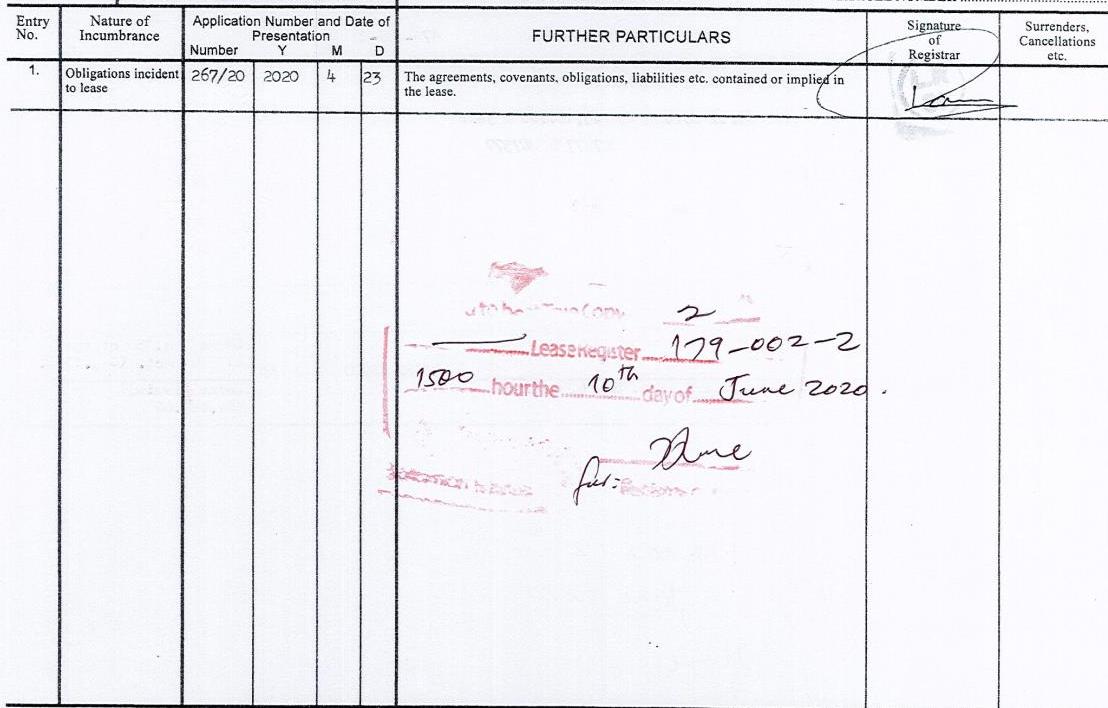 Entry No.
Nature of Incumbrance
Application Number and Date of Presentation
Number Y M D
FURTHER PARTICULARS
Signature of Registrar
Surrenders, Cancellations etc.
1.
Obligations incident to lease
267/20 2020 4 23
The agreements, covenants, obligations, liabilities etc. contained or implied in
the lease.
True Copy 2
Lease Register 179-002-2
1500 hour the 10th day of June 2020.
for: Registrar